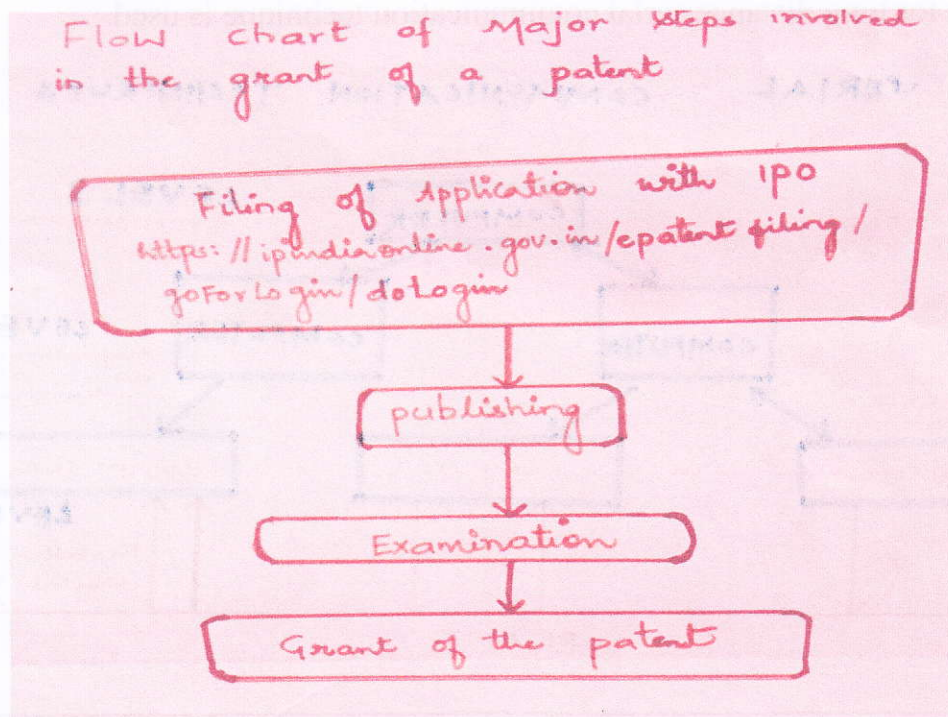 Flow chart of Major steps involved
in the grant of a patent
Filing of Application with IPO
https://ipindiaonline.gov.in/epatentfiling/
goForLogin/doLogin
publishing
Examination
Grant of the patent